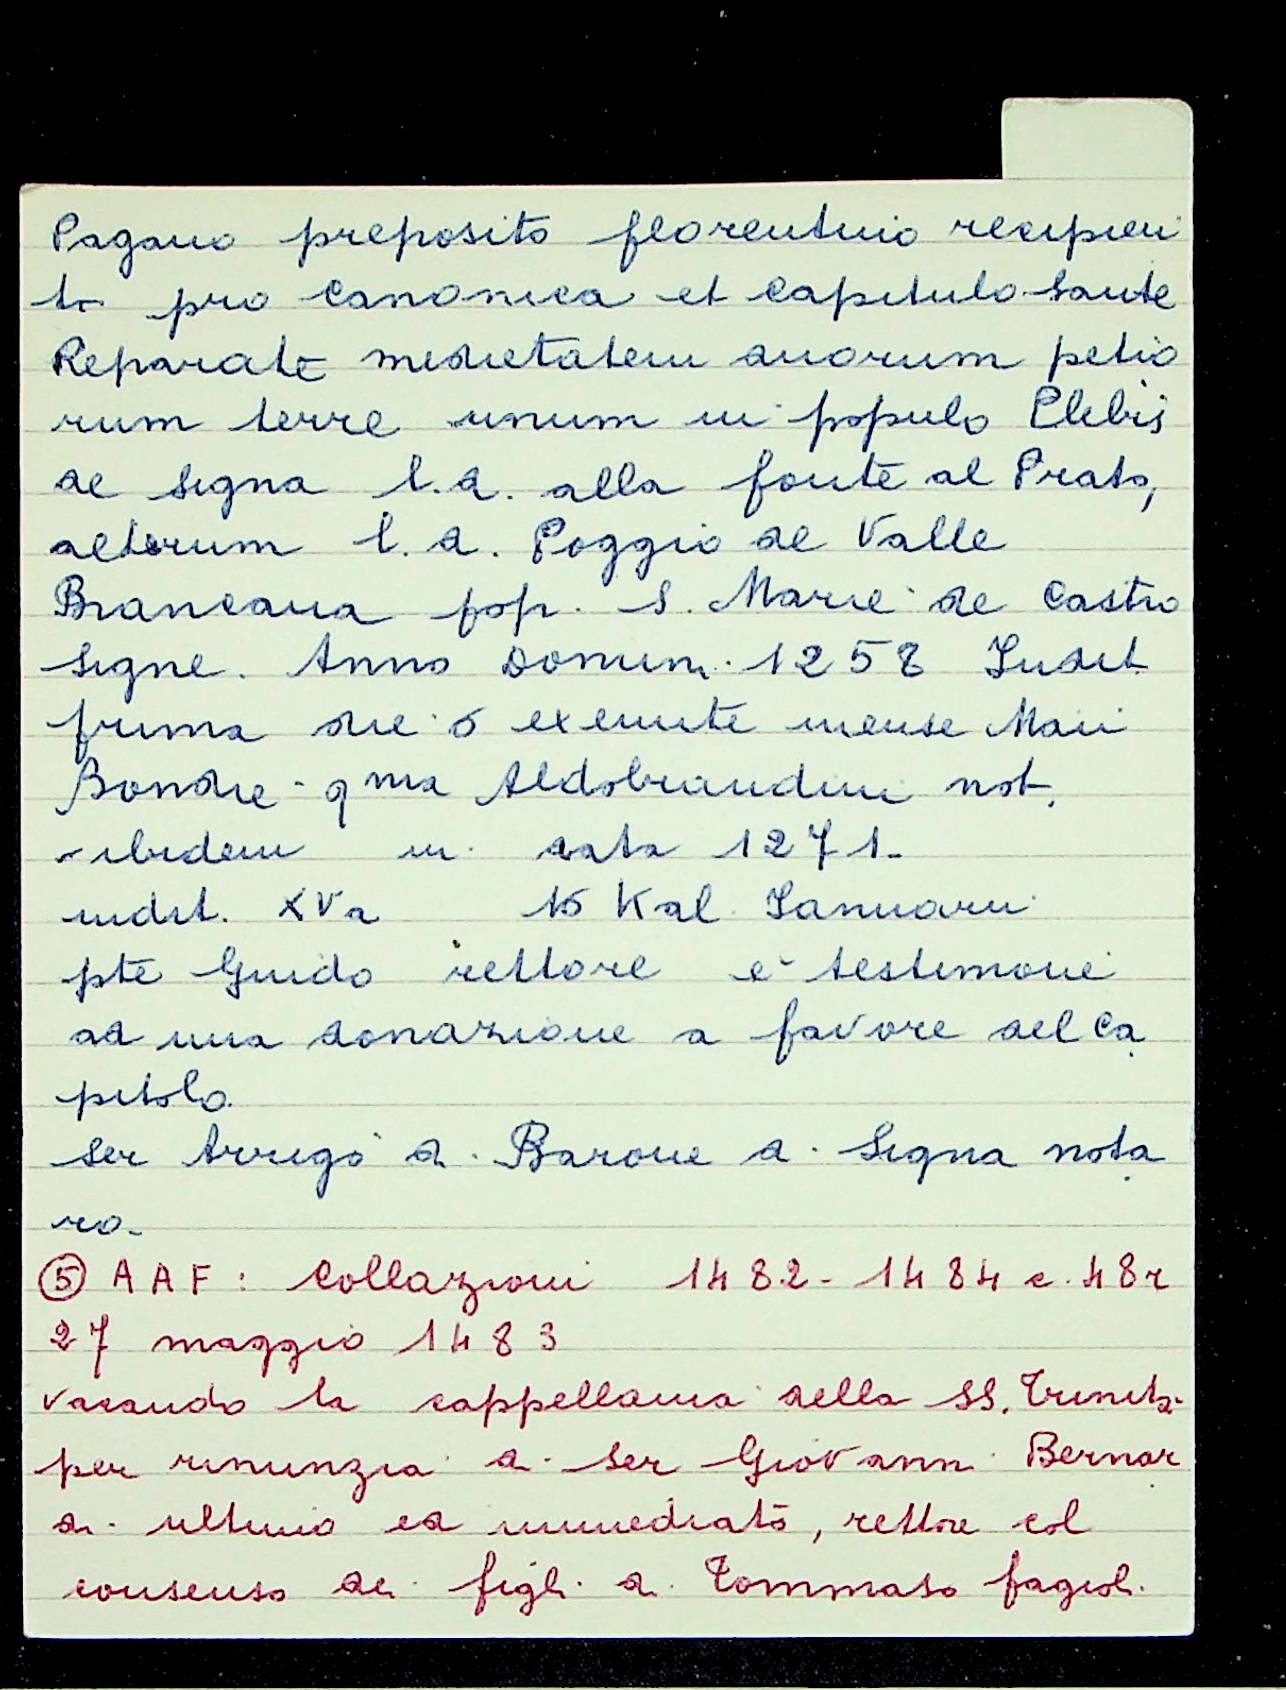 Pagano preposito florentino recipien
te pro Canonica et capitulo Sante
Reparate medietatem duorum petio
rum terre unum in populo Plebis
de Signa l.d. alla fonte al Prato,
alterum l.d. Poggio de Valle
Brancana pop. S. Marie de Castro
Signe. Anno Domini 1258 Indit.
prima die 6 exeunte mense Maii
Bondie qma Aldobrandini not.
- ibidem in data 1271-
indit. XVa 16 Kal. Januarii
pte Guido rettore è testimone
ad una donazione a favore del Ca
pitolo.
ser Arrigo di Barone da Signa nota
ro.
⑤ AAF: Collazioni 1482-1484 c. 48r
27 maggio 1483
vacando la cappellania della SS. Trinità
per rinunzia di ser Giovanni Bernar
di ultimo ed immediato, rettore col
consenso dei figli di Tommaso fagioli